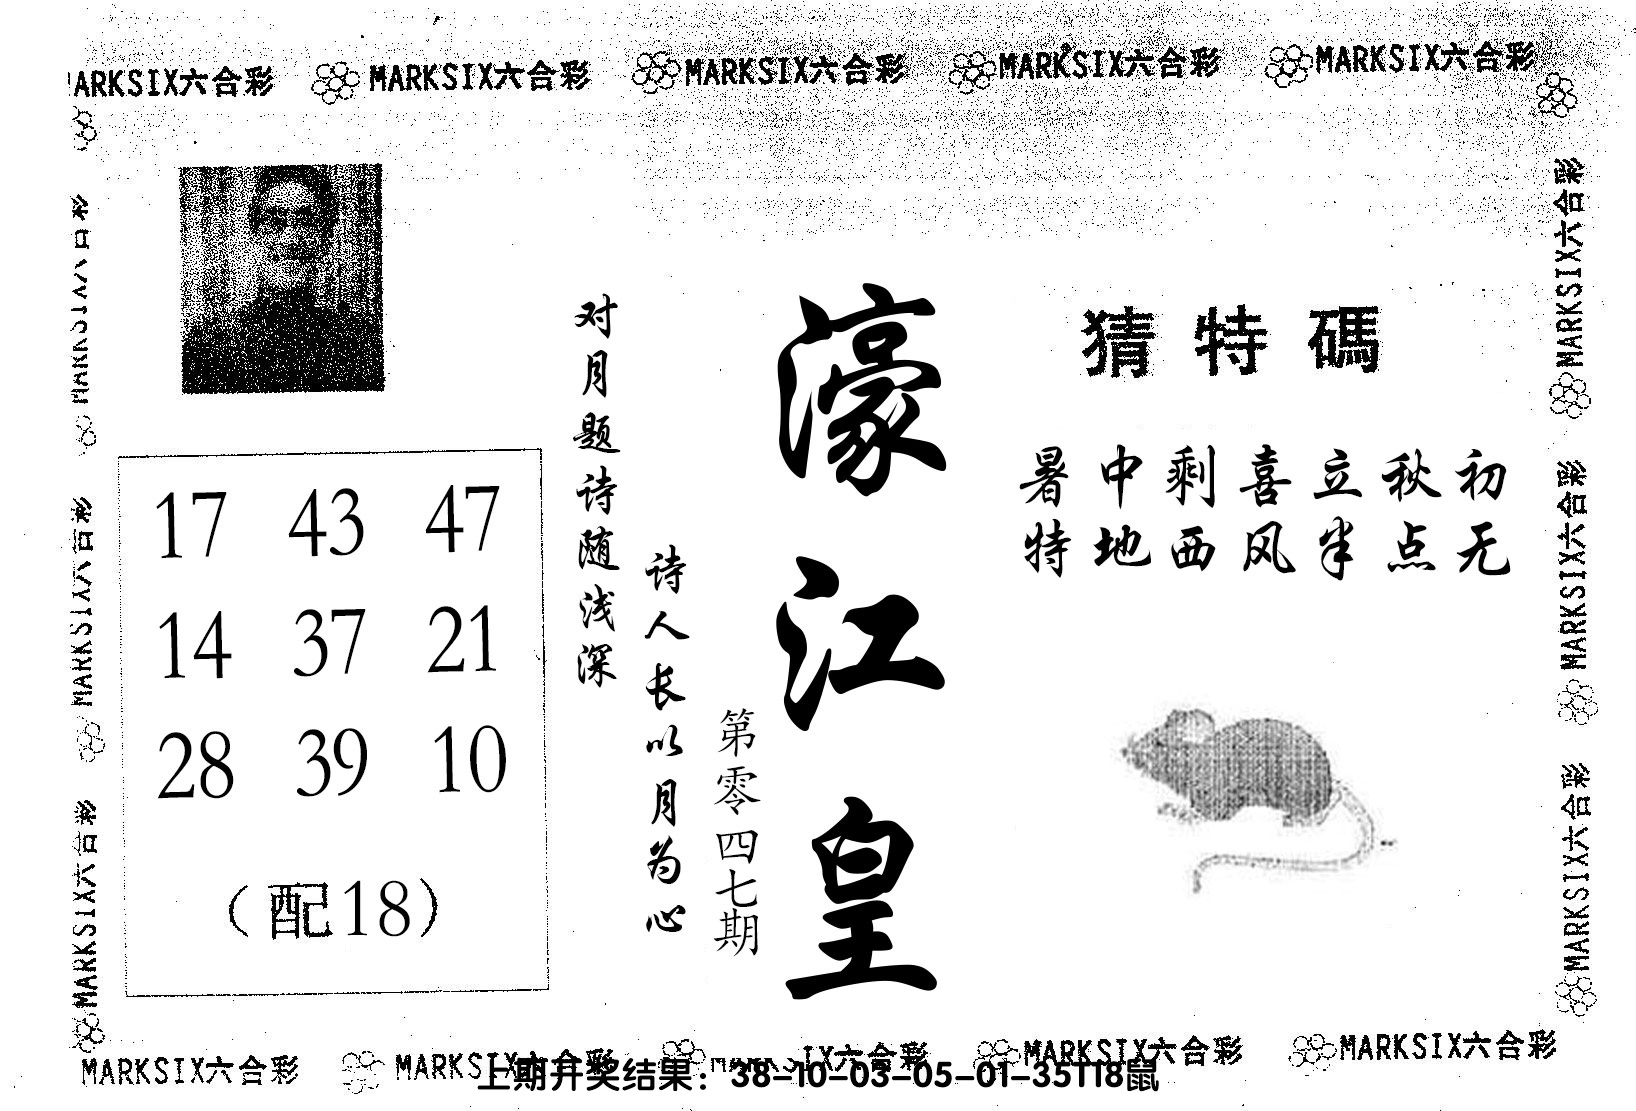 MARKSIX六合彩 MARKSIX六合彩 MARKSIX六合彩 MARKSIX六合彩 MARKSIX六合彩
猜特碼
暑中剩喜立秋初
特地西风半点无
濠江皇
第零四七期
诗人长以月为心
对月题诗随浅深
17 43 47
14 37 21
28 39 10
(配18)
MARKSIX六合彩
MARKSIX六合彩
MARKSIX六合彩
MARKSIX六合彩
MARKSIX六合彩
MARKSIX六合彩
MARKSIX六合彩 MARKSIX六合彩 MARKSIX六合彩 MARKSIX六合彩
上期开奖结果：38-10-03-05-01-35T18鼠